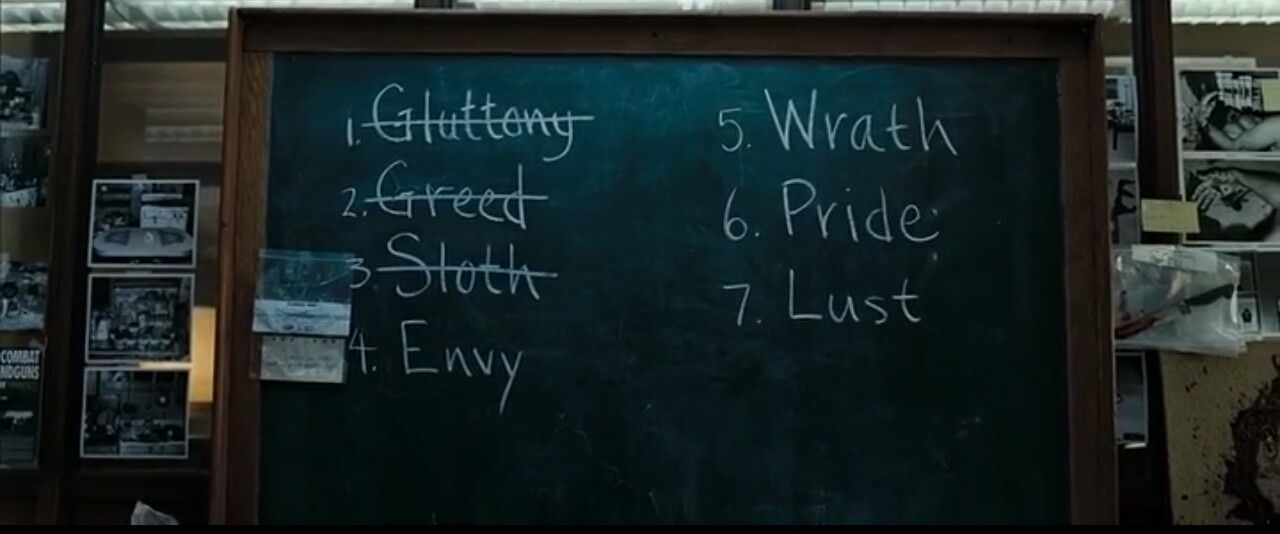 1. Gluttony
2. Greed
3. Sloth
4. Envy
5. Wrath
6. Pride
7. Lust
COMBAT
HANDGUNS